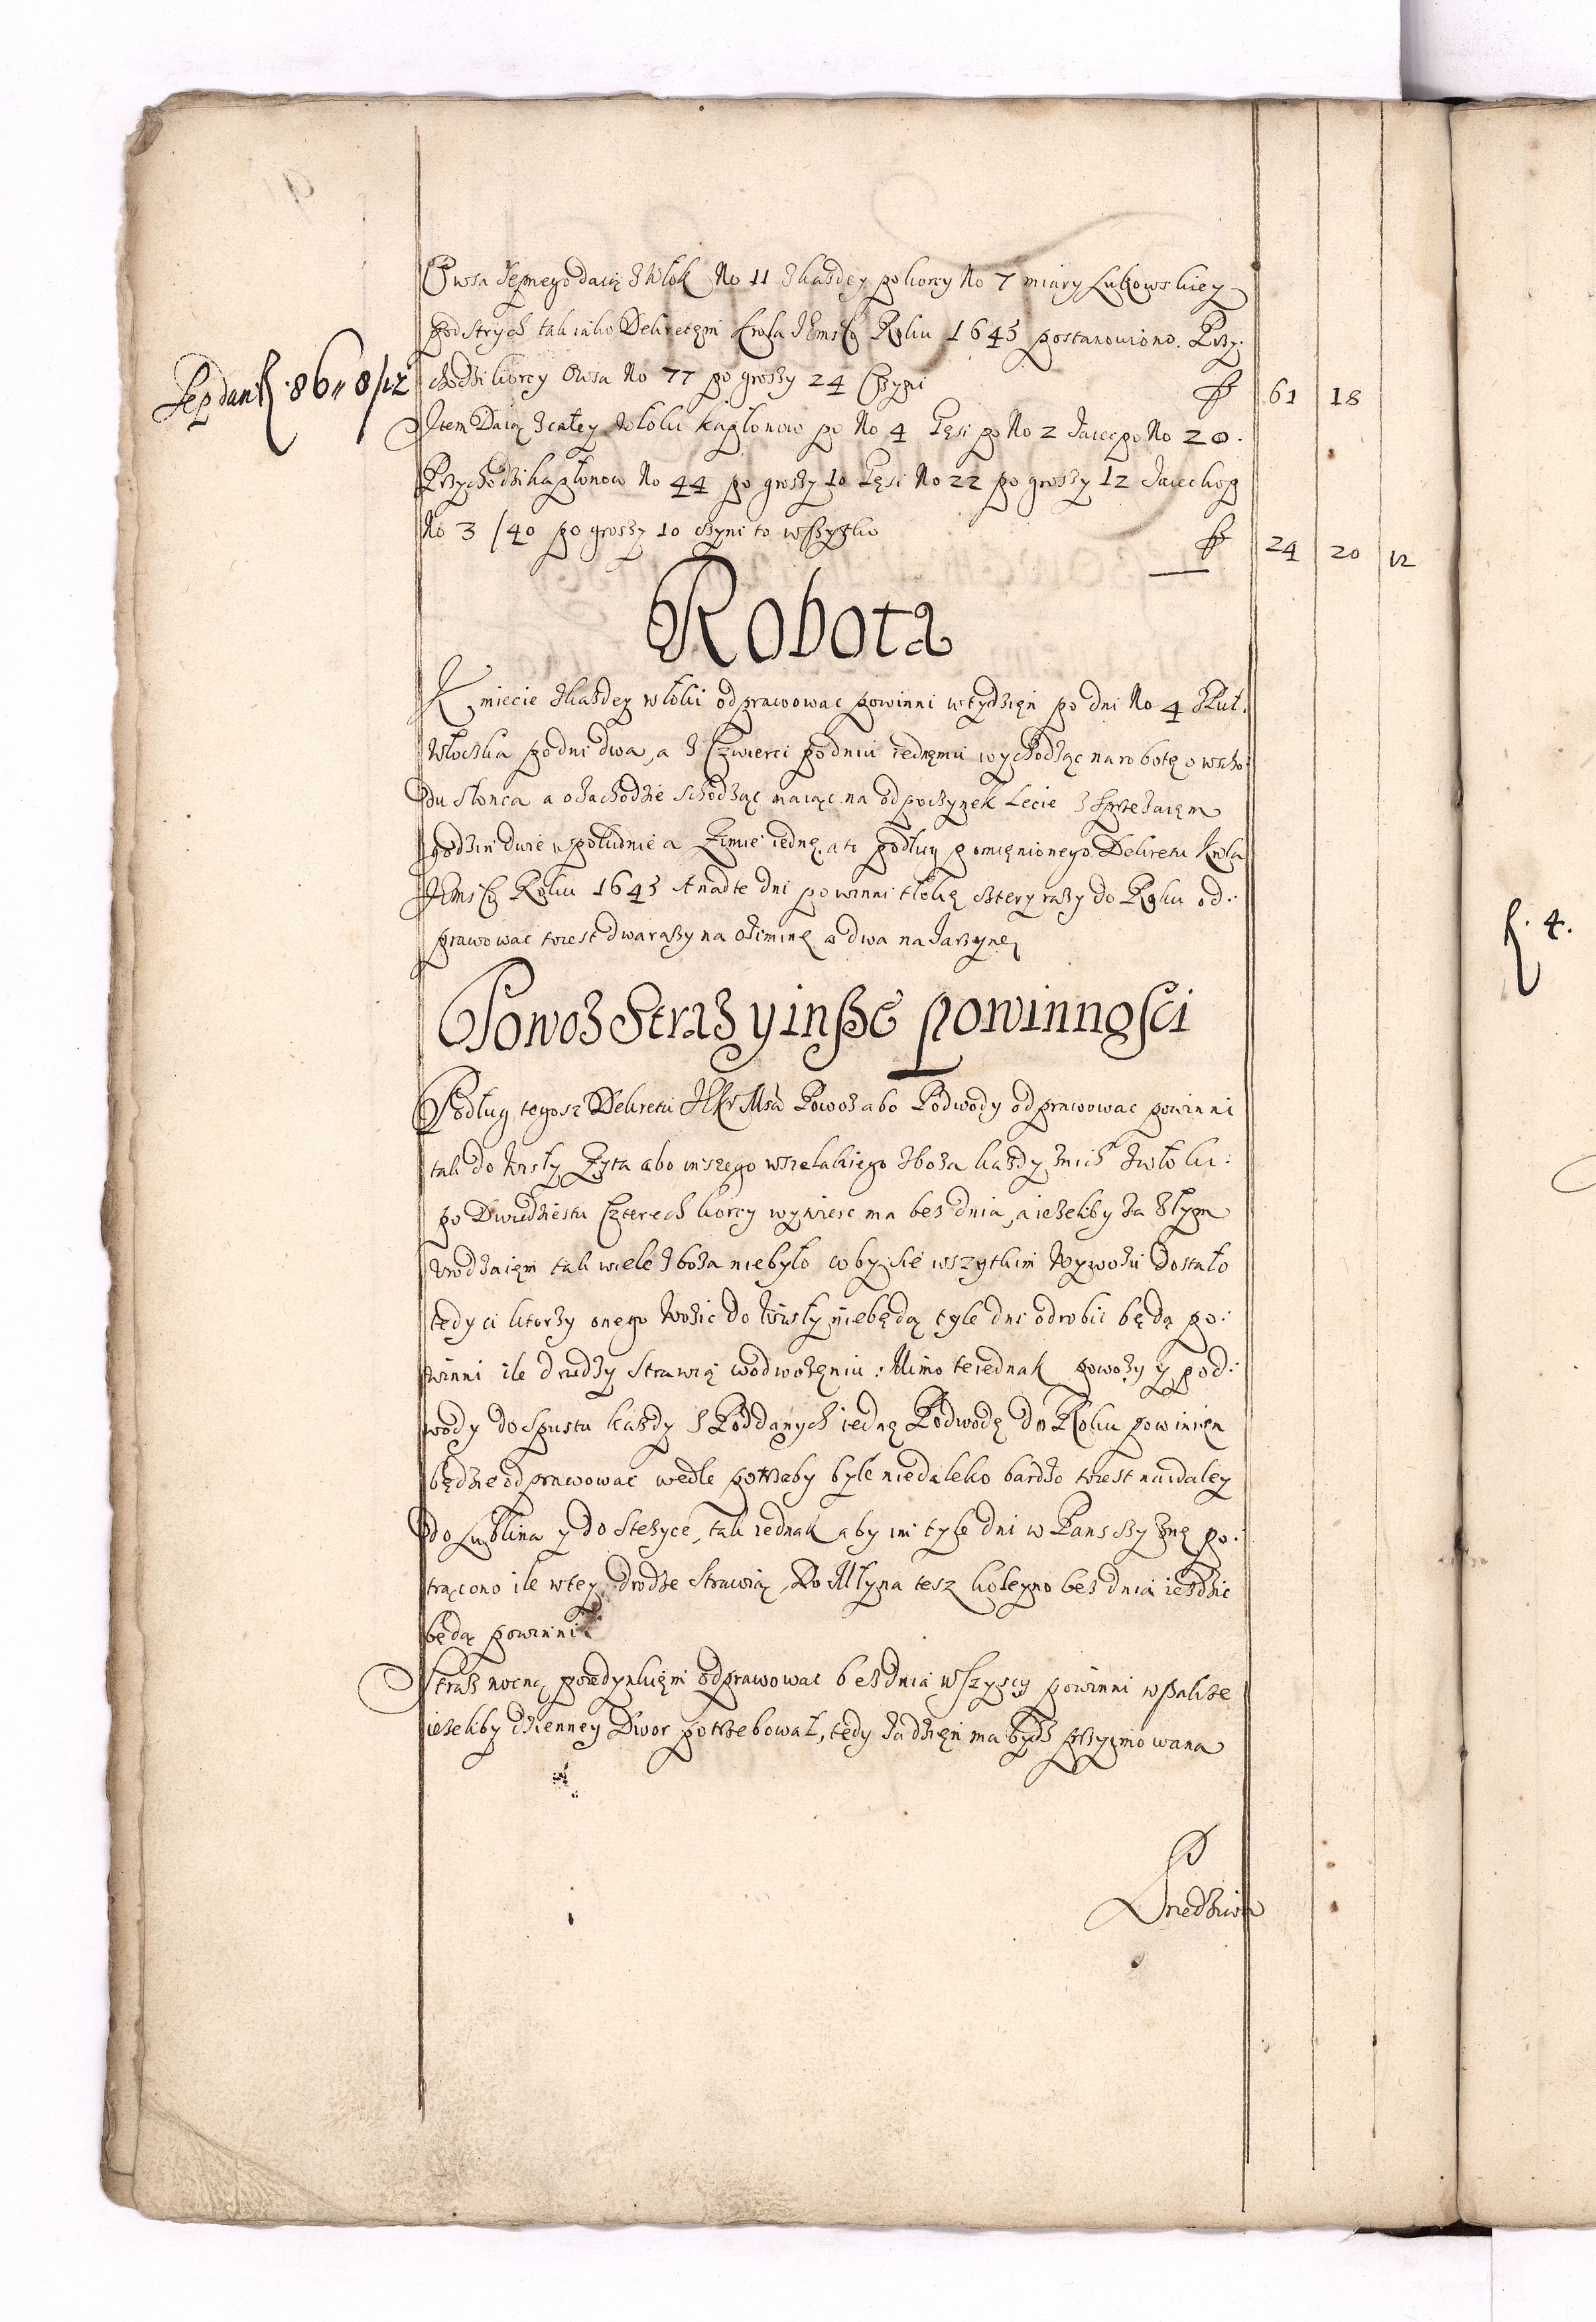 Owsa Sepnego daią z Włok No 11 z każdey po korcy No 7 miary Łukowskiey
pod strych tak iako Dekretem Krola JEMsCi Roku 1643 postanowiono. Przy:
chodzi korcy Owsa No 77 po groszy 24 Czyni ƒ 61 18
Sep dani ƒ. 86 „ 8/12
Item Daią z całey Włoki kapłonow po No 4 Gęsi po No 2 Jaiec po No 20.
Przychodzi kapłonow No 44 po groszy 10 Gęsi No 22 po groszy 12 Jaiec kop
No 3 /40 po groszy 10 czyni to wszytko ƒ 24 20 12
Robota
Kmiecie z każdey włoki odprawować powinni w tydzięn po dni No 4 z Puł:
włoczka po dni dwa, a z Czwierci po dniu iednęmu wychodząc na robotę o wscho:
du słonca a o zachodzie schodząc maiąc na odpoczynek Lecie z sprzężaięm
godzin dwie w południe a Zimie iednę. a to podług pomięnionego Dekretu Krola
JEMsCi Roku 1643 A nad te dni powinni tłokę cztery razy do Roku od:
prawować to iest dwa razy na oziminę a dwa na Jarzynę
Powoz Straz y insze powinnosci
Podług tegosz Dekretu JKr Msci Powoz abo Podwody odprawować powinni
tak do Wisły Zyta abo inszego wszelakiego zboza kazdy znich z włoki:
po Dwudziestu Czterech korcy wywiesc ma bez dnia, a iezeliby za złym
Vrodzaięm tak wiele zboza niebyło coby sie wszytkim Wywozu dostało
tedy ci ktorzy onego Wozic do Wisły niebędą tyle dni odrobic będą po:
winni ile drudzy strawią w odwozęniu: Mimo te iednak powozy y pod:
wody do Spustu kazdy z Poddanych iednę Podwodę do Roku powinięn
będzie odprawować wedle potrzeby byle niedaleko bardzo to iest naidaley
do Lublina y do Stezyce, tak iednak aby im tyle dni w Panszczyznę po:
trącono ile w tey drodze strawią, Do Młyna tesz koleyno bez dnia iezdzic
będą powinni
Straz nocną poiedynkięm odprawować bez dnia wszyscy powinni wszakze
iezeliby dzienney Dwor potrzebował, tedy za dzięn ma bydz przyimowana
ƒ. 4.